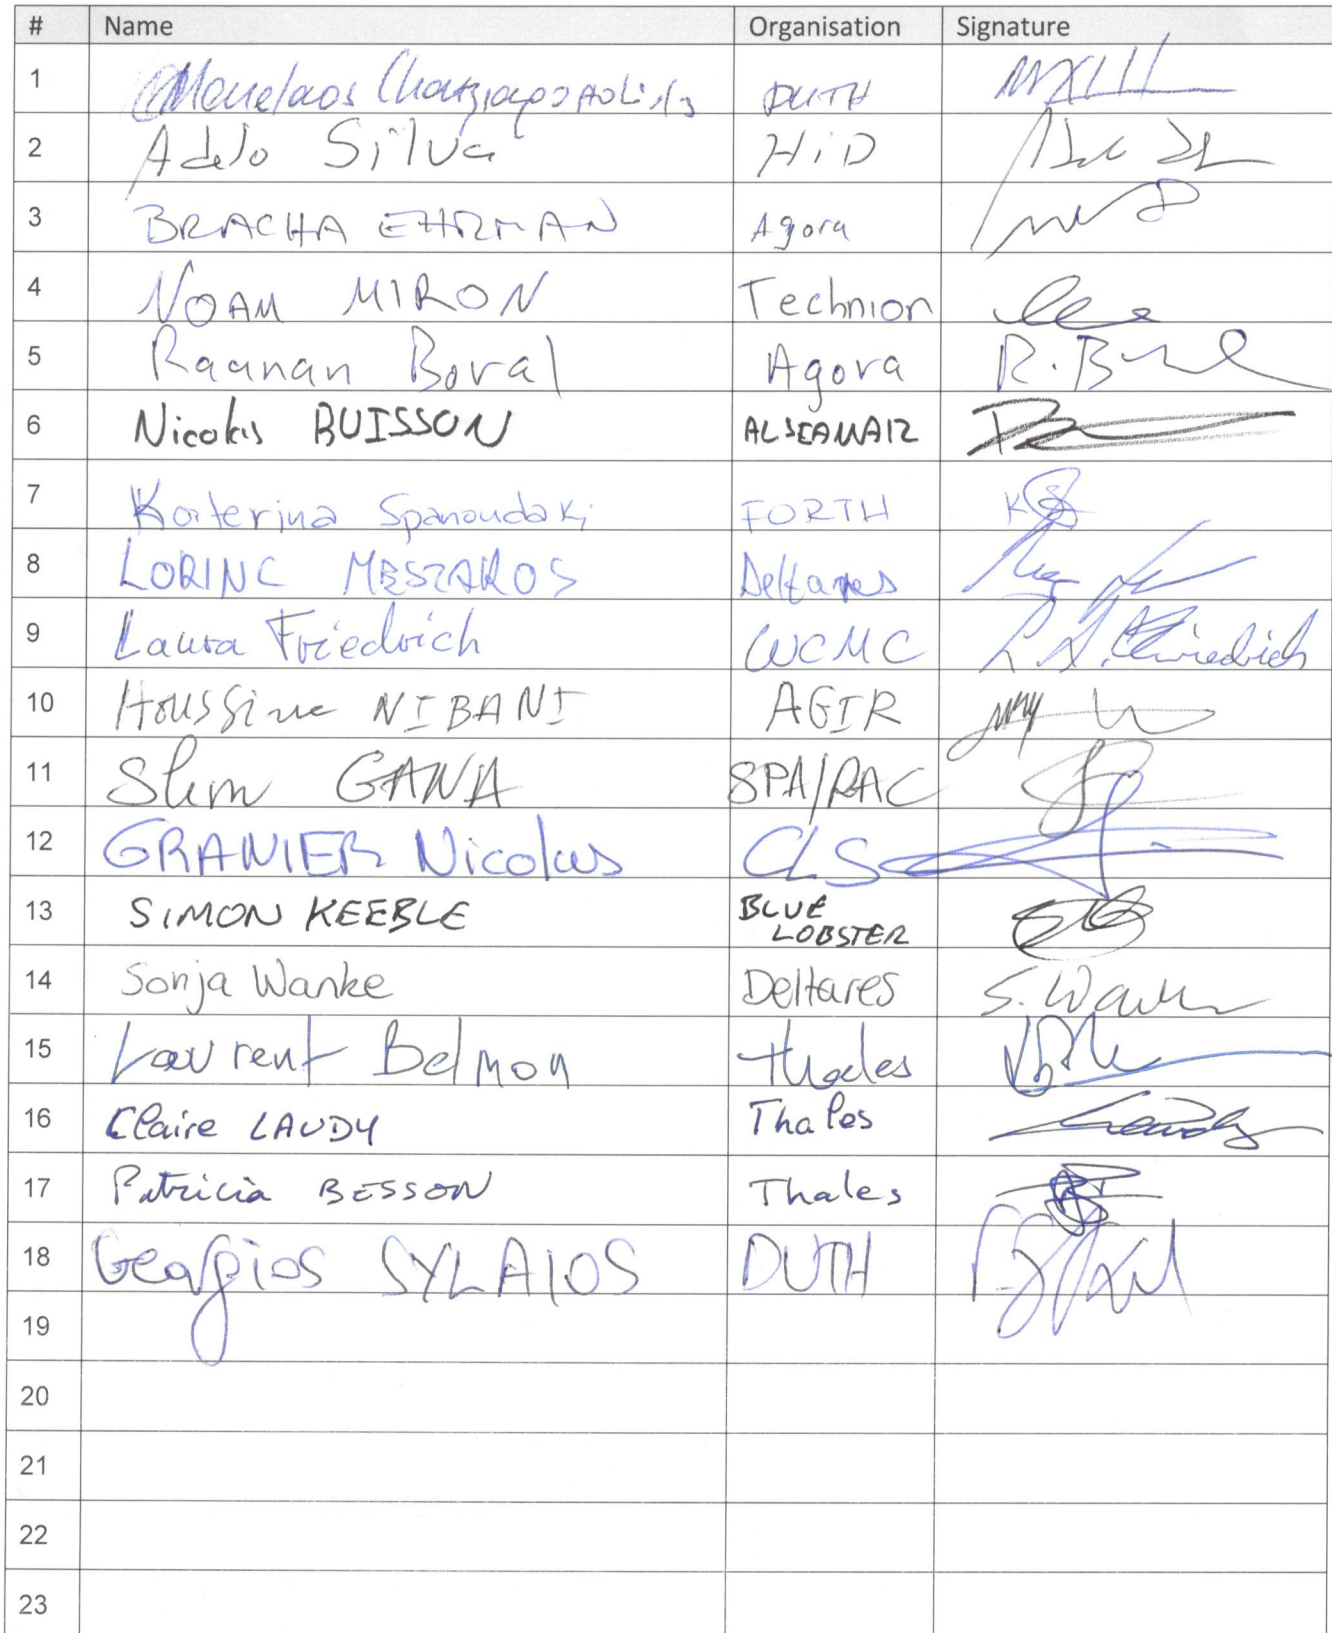 # Name Organisation Signature
1 Menelaos DUTH
2 Adelo Silva HiD
3 BRACHA EHRMAN Agora
4 NOAM MIRON Technion
5 Raanan Boral Agora R.
6 Nicolas BUISSON ALSEAMAR
7 Katerina Spanoudaki FORTH
8 LORINC MESZAROS Deltares
9 Laura Friedrich WCMC L. Friedrich
10 Houssine NIBANI AGIR
11 Slim GANA SPA/RAC
12 GRANIER Nicolas CLS
13 SIMON KEEBLE BLUE
LOBSTER
14 Sonja Wanke Deltares S. Wanke
15 Laurent Belmon Thales
16 Claire LAUDY Thales Laudy
17 Patricia BESSON Thales
18 Georgios SYLAIOS DUTH
19
20
21
22
23